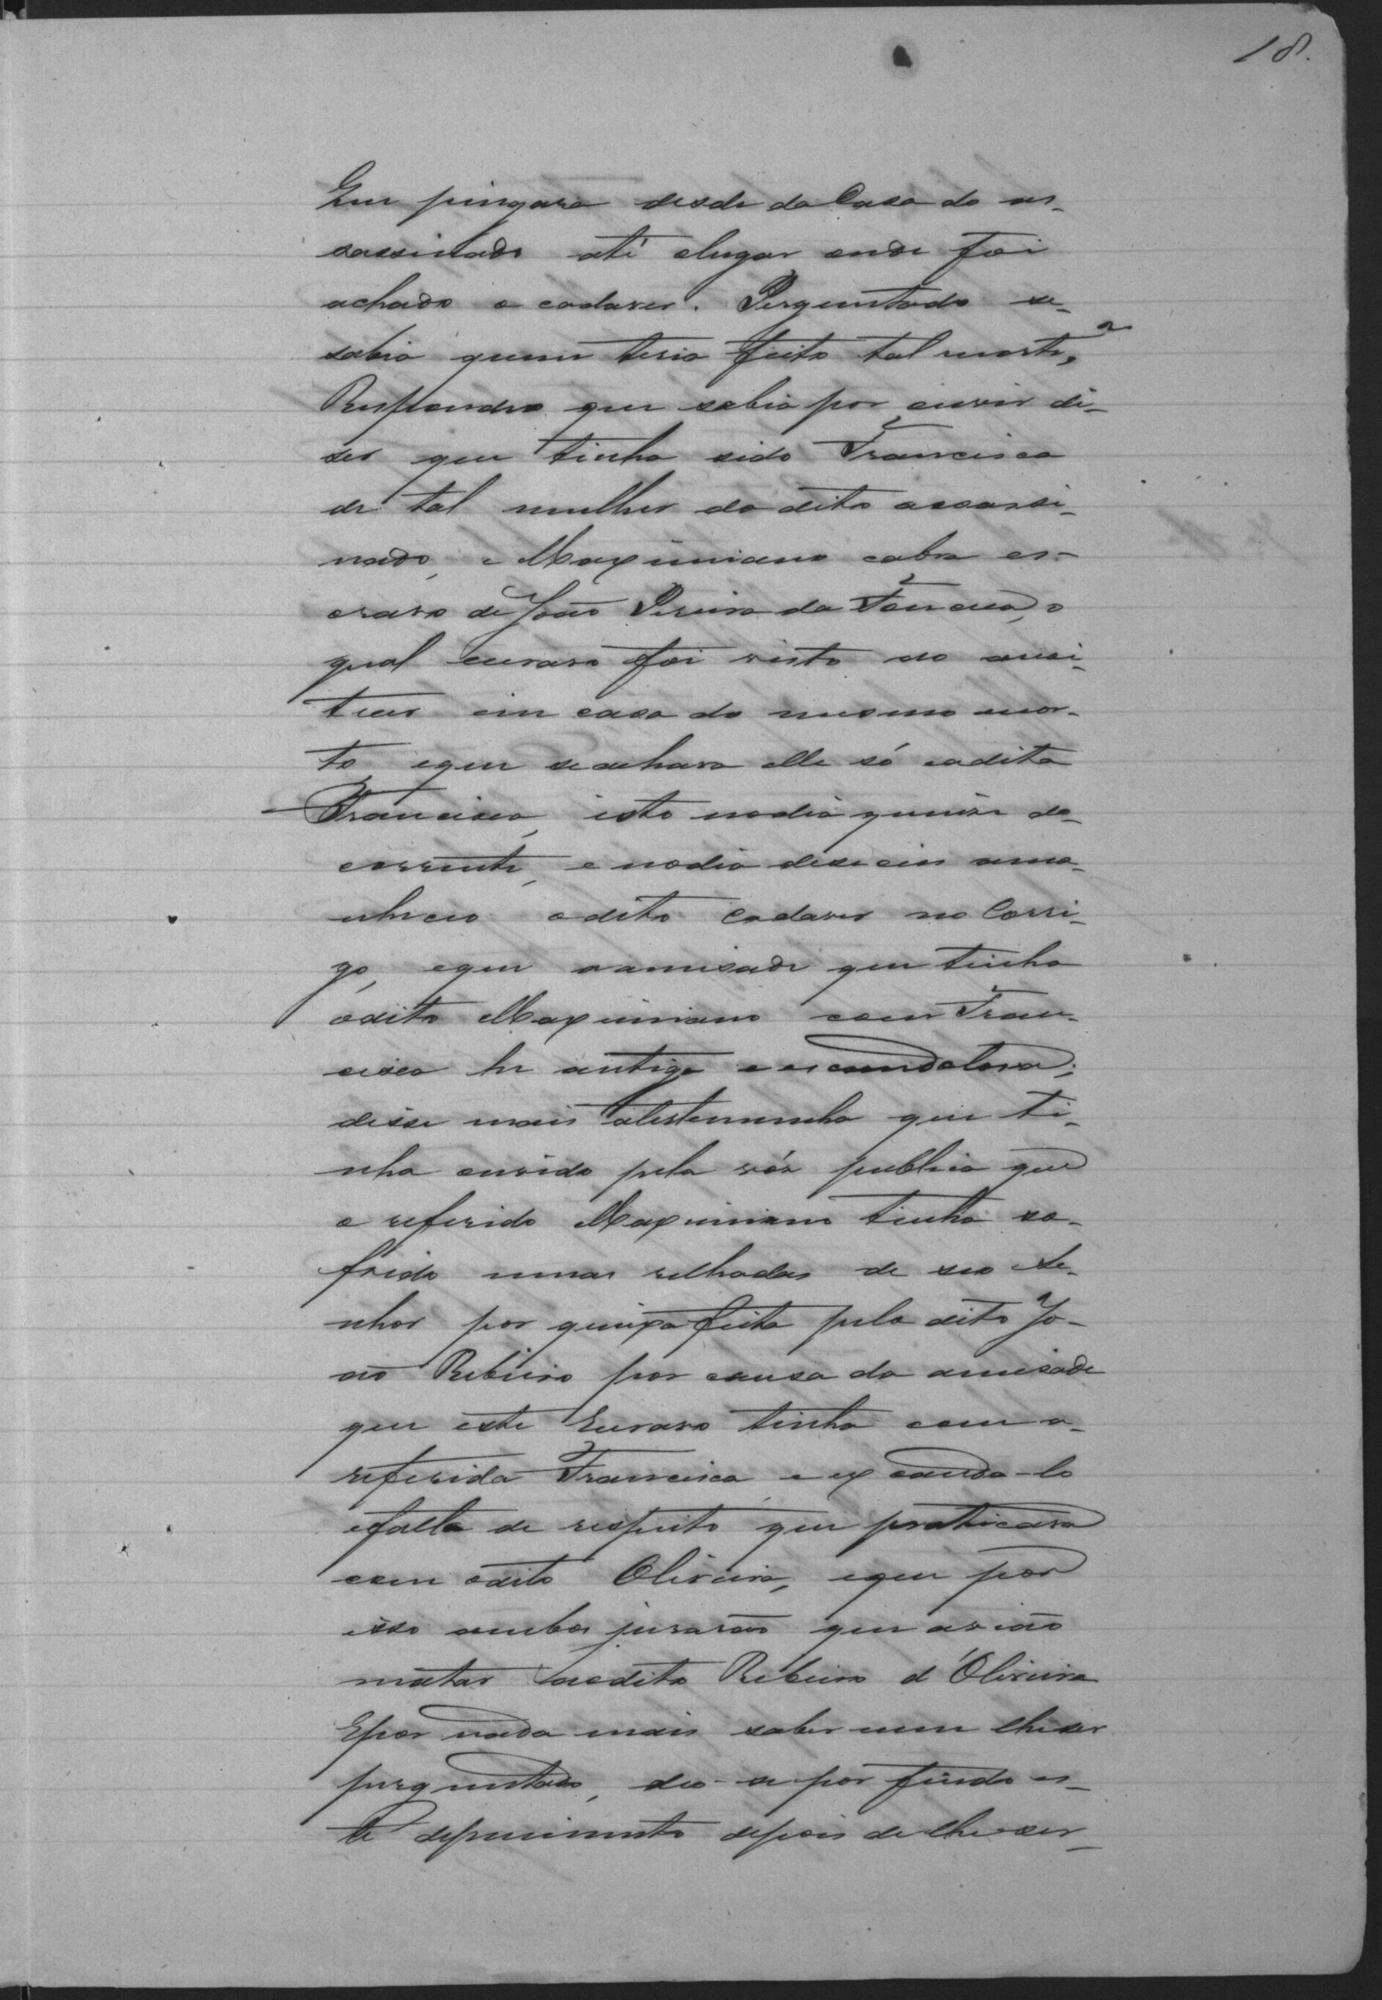 18.
Que pingava desde da Casa do as-
sassinado até olugar onde foi
achado o cadaver. Perguntado se-
sabia quem teria feito tal morte,
Respondeo que sabia por ouvir di-
ser que tinha sido Francisca
de tal mulher do dito assassi-
nado, e Maximiano cabra es-
cravo de João Pereira da Fonceca, o
qual escravo foi visto ao anoi-
tecer em casa do mesmo mor-
to equé seachava elle só eadita
Francisca, isto nodia quinse do-
corrente, e nodia deseceis ama-
nheceo odito Cadaver no Corri-
go, eque aamisade que tinha
odito Maximiano com Fran-
cisca he antiga e escandalosa;
disse mais atestemunha que ti-
nha ouvido pela vós publica que
o referido Maximiano tinha so-
frido umas relhadas de seo Se-
nhor por queixa feita pelo dito Jo-
ao Ribeiro por causa da amisade
que este Escravo tinha com a-
referida Francisca e excanda-lo
efalta de respeito que praticava
com odito Oliveira, eque por
isso ambos jurarão que avião
matar aodito Ribeiro d'Oliveira
Epor nada mais saber nem lheser
perguntado, deo-se por findo es-
te depoimento depois de lheser-